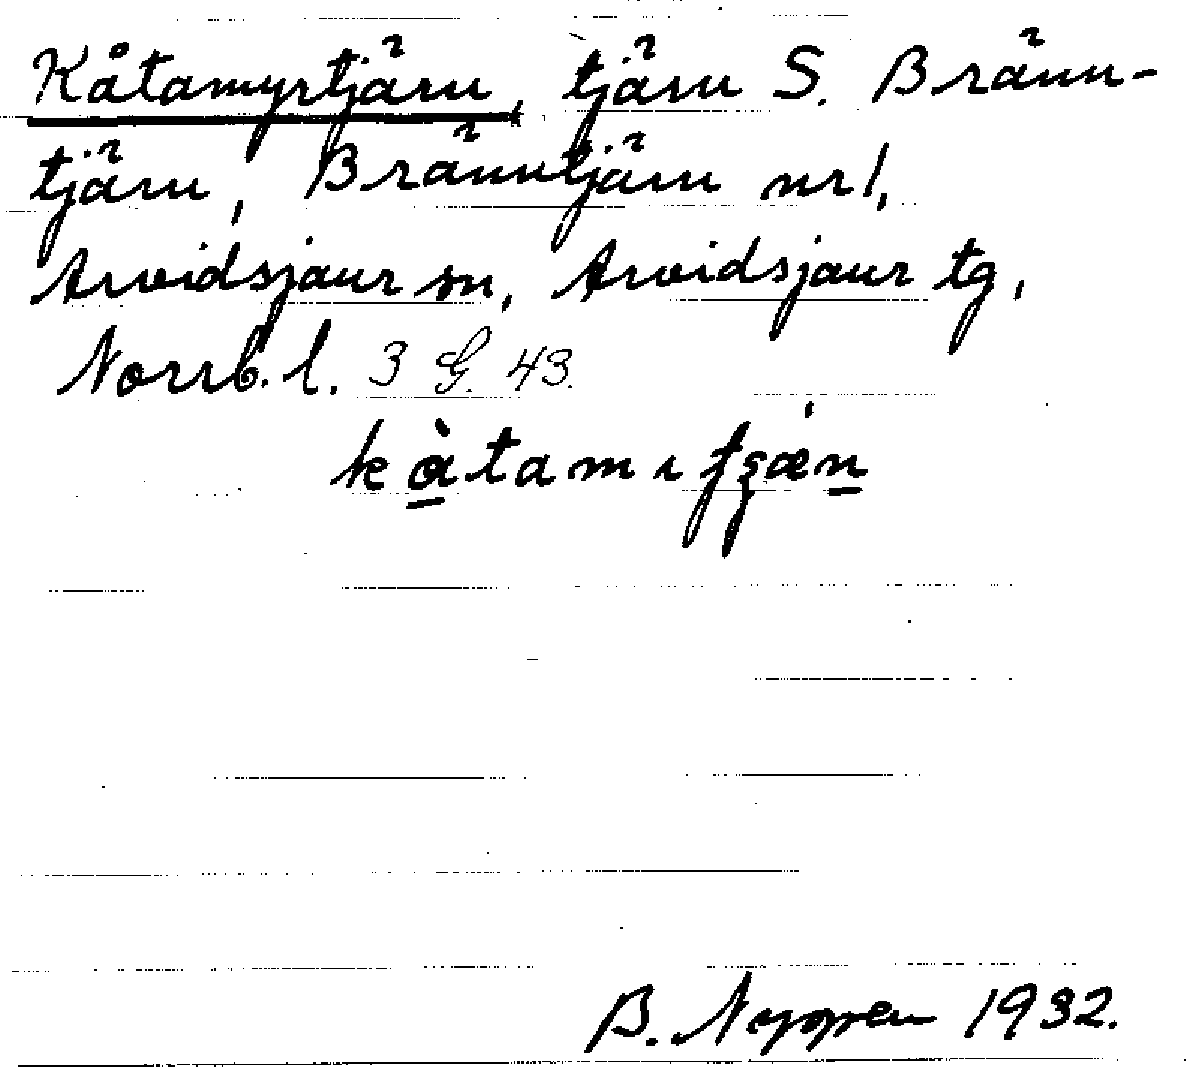 Kåtamyrtjärn, tjärn S. Bränn-
tjärn, Bränntjärn nr 1,
Arvidsjaur sn, Arvidsjaur tg,
Norrb. l. 3 G. 43.
B. 1932.